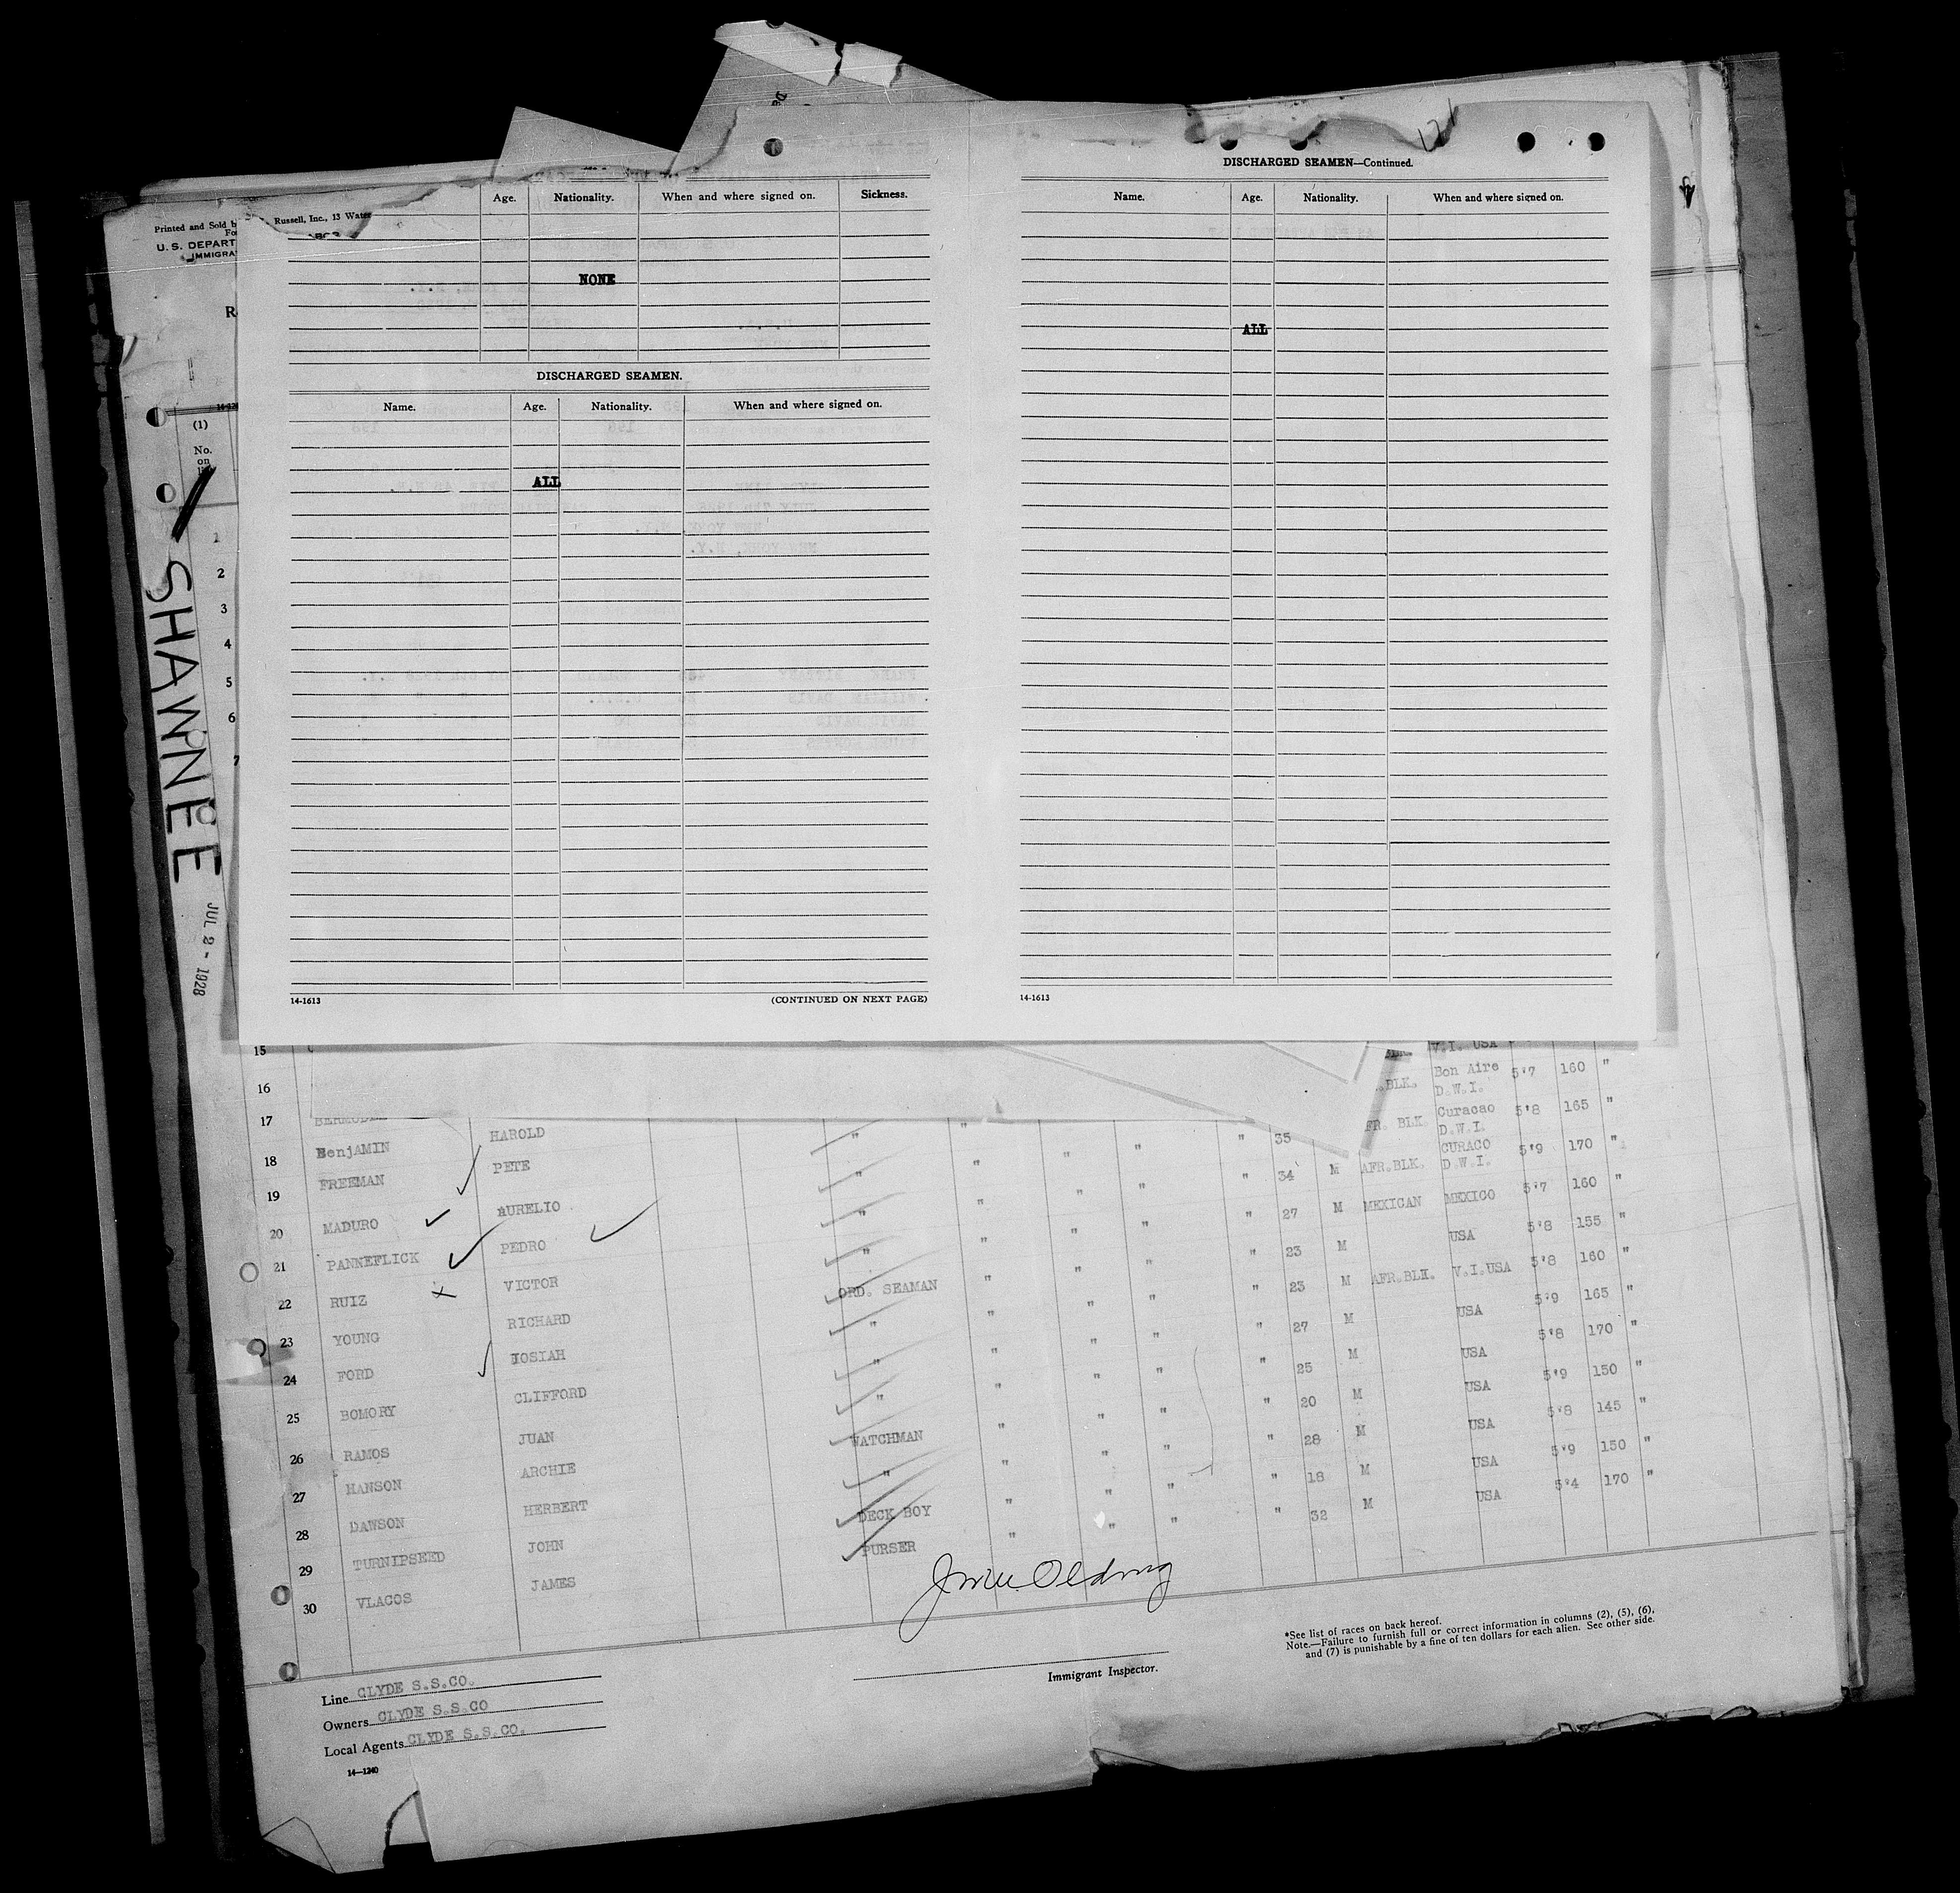 DISCHARGED SEAMEN—Continued.
Age. Nationality. When and where signed on. Sickness.
Name. Age. Nationality. When and where signed on.
Printed and Sold b Russell, Inc., 13 Water
U. S. DEPART
IMMIGRA
NONE
ALL
DISCHARGED SEAMEN.
Name. Age. Nationality. When and where signed on.
(1)
No.
on
ALL
1
2
3
4
5
6
7
SHAWNEE
JUL 2 - 1928
14-1613 (CONTINUED ON NEXT PAGE)
14-1613
15 V.I. USA
16 .BLK. Bon Aire D.W.I. 5'7 160 "
17 BERMUDEZ FR. BLK Curacao D.W.I. 5'8 165 "
18 BenjAMIN HAROLD " " " " " 35 AFR.BLK. CURACO D.W.I. 5'9 170 "
19 FREEMAN PETE " " " " " 34 M MEXICAN MEXICO 5'7 160 "
20 MADURO AURELIO " " " " " 27 M USA 5'8 155 "
21 PANNEFLICK PEDRO " " " " " 23 M AFR.BLK. V.I.USA 5'8 160 "
22 RUIZ VICTOR ORD. SEAMAN " " " " 23 M USA 5'9 165 "
23 YOUNG RICHARD " " " " " 27 M USA 5'8 170 "
24 FORD JOSIAH " " " " " 25 M USA 5'9 150 "
25 BOMORY CLIFFORD " " " " " 20 M USA 5'8 145 "
26 RAMOS JUAN WATCHMAN " " " " 28 M USA 5'9 150 "
27 HANSON ARCHIE " " " " " 18 M USA 5'4 170 "
28 DAWSON HERBERT DECK BOY " " " " 32 M
29 TURNIPSEED JOHN PURSER " " "
30 VLACOS JAMES
*See list of races on back hereof.
Note.—Failure to furnish full or correct information in columns (2), (5), (6),
and (7) is punishable by a fine of ten dollars for each alien. See other side.
Immigrant Inspector.
Line CLYDE S.S.CO.
Owners CLYDE S.S.CO
Local Agents CLYDE S.S.CO.
14—1240